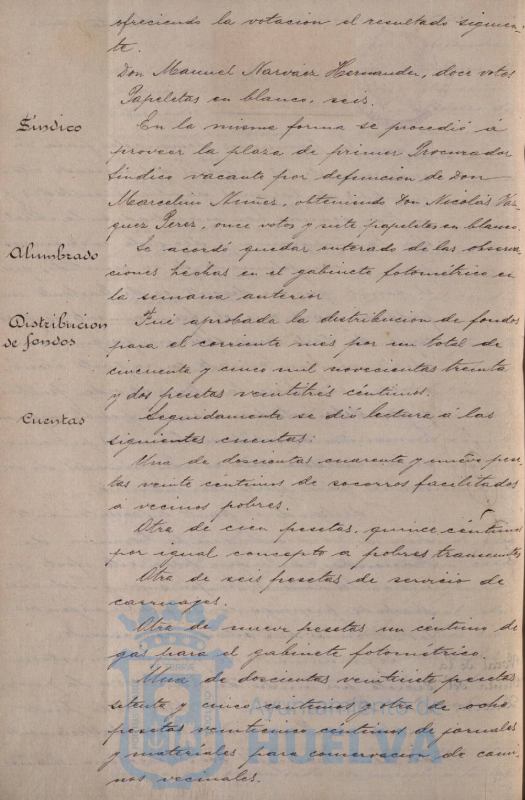 ofreciendo la votacion el resultado siguien-
te.
Don Manuel Narváez Hernandez, doce votos
Papeletas en blanco, seis.
Síndico
En la misma forma se procedió á
proveer la plaza de primer Procurador
Síndico vacante por defuncion de Don
Marcelino Nuñez, obteniendo Don Nicolás Vaz
quez Perez, once votos y siete papeletas en blanco.
Alumbrado
Se acordó quedar enterado de las observa
ciones hechas en el gabinete fotométrico en
la semana anterior
Distribucion
de fondos
Fué aprobada la distribucion de fondos
para el corriente mes por un total de
cincuenta y cinco mil novecientas treinta
y dos pesetas veintitrés céntimos.
Cuentas
Seguidamente se dió lectura á las
siguientes cuentas:
Una de doscientas cuarenta y nueve pese
tas veinte céntimos de socorros facilitados
a vecinos pobres.
Otra de cien pesetas, quince céntimos
por igual concepto a pobres transeuntes
Otra de seis pesetas de servicio de
carruajes.
Otra de nueve pesetas un céntimo de
gas para el gabinete fotométrico.
Una de doscientas veintisiete pesetas
setenta y cinco céntimos y otra de ocho
pesetas veinticinco céntimos de jornales
y materiales para conservacion de cami
nos vecinales.
Ayuntamiento de
HUELVA